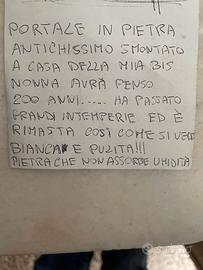 PORTALE IN PIETRA
ANTICHISSIMO SMONTATO
A CASA DELLA MIA BIS
NONNA AVRÀ PENSO
200 ANNI..... HA PASSATO
GRANDI INTEMPERIE ED È
RIMASTA COSÌ COME SI VEDE
BIANCA E PULITA!!!
PIETRA CHE NON ASSORBE UMIDITÀ
subito